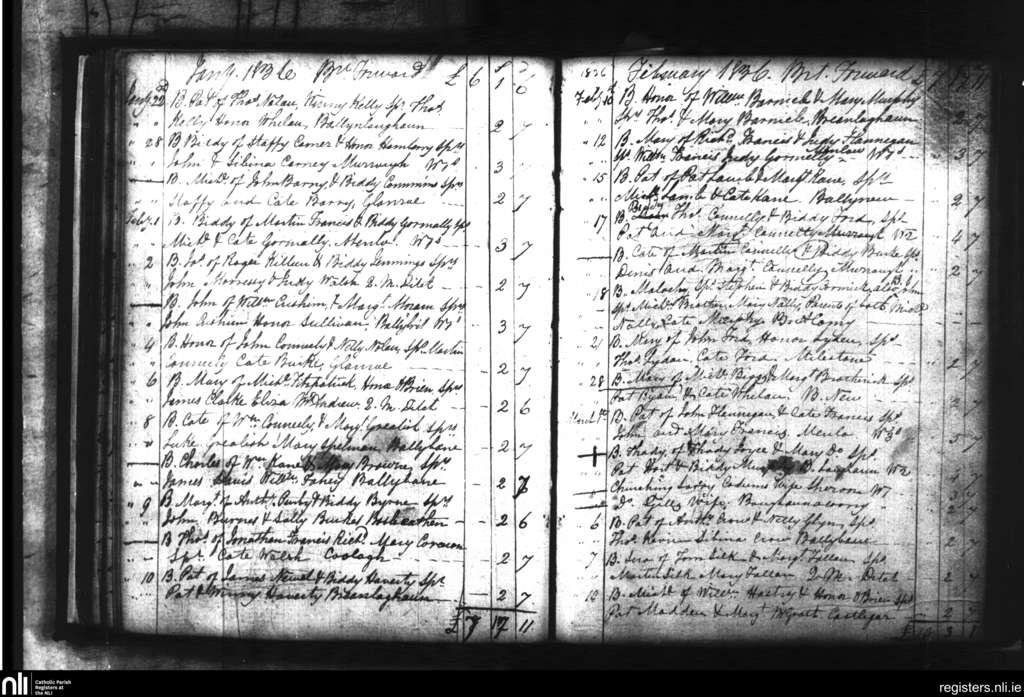 Jany. 1836 Brt Forward £ 6 1 0
Jany 22 B. Pat of Thos Nolan, Winny Kelly Sps Thos
" " Kelly Honor Whelan, Ballynlaughaun — 2 7
" 28 B. Biddy of Staffy Comer & Honor Hanbery Sps
" " John & Sibina Carney Murrough W7s — 3 7
— B. Michl. of John Barry & Biddy Commins Sps
" " Staffy and Cate Barry, Glanrae — 2 7
Feby. 1 B. Biddy of Martin Francis & Biddy Gormally Sps
" " Michl & Cate Gormally. Menlo. W7s — 3 7
" 2 B. Jos. of Roger Killeen & Biddy Jennings Sps
" " John Morressy & Judy Walsh 2. M. Ditch — 2 7
— B. John of Willm Cushion, & Margt. Moran Sps
" " John Cushion Honor Sullivan, Ballybrit W7s — 3 7
" 4 B. Honor of John Conneely & Nelly Nolan, Sps Martin
Conneely Cate Burke, Glanrae — 2 7
" 6 B. Mary of Michl. Fitzpatrick, Hona O'Brien Sps
" " James Clarke Eliza McAndrew 2. M. Ditch — 2 6
" 8 B. Cate of Wm Conneely, & Mary Grealish Sps
" " Luke Grealish Mary Spelman Ballybane — 2 7
— B. Charles of Wm Kane & Mary Browne, Sps.
" " James Davis Willm Fahey Ballybane — 2 7
" 9 B. Margt. of Anthy. & Biddy Byrne Sps
" " John Burnes & Sally Burke — 2 6
— B. Thos. of Jonathan Francis Richd. Mary Corcoran
" " Sps. Cate Walsh Coolagh — 2 7
" 10 B. Pat of James Newel & Biddy Haverty Sps.
Pat & Winny Haverty Breanlaghaun — 2 7
£ 7 17 11
1836 February 1836. Brt. Forward £ 7 17 11
Feby. 10 B. Honor of Willm Barnicle & Mary Murphy
" " Sps Thos. & Mary Barnicle, Breanlaghaun 2 7
" 12 B. Mary of Richd Francis & Judy Hannegan
" " Sps Willm Francis Judy Gormelly Menlow W7s 3 7
" 15 B. Pat of Pat Lamb & Margt Kane, Sps
Michl. Lamb & Cate Kane Ballynew 2 7
" 17 B. Biddy Thos. Connelly & Biddy Ford, Sps
Pat and Margt. Connelly Murrough W2 4 7
— B. Cate of Martin Cannelly & Biddy Burke Sps
Denis and Margt. Connelly, Murrough 2 7
" 18 B. Malachy Sps Stephen & Biddy Cormick also B. John
Sps. Michl. Mary Nally, Parents of both Michl
Nelly Cate Murphy —
" 21 B. Mary of John Ford, Honor Lydon, Sps
Thos Lydon Cate Ford. Milestone 2 7
" 28 B. Mary of Michl. Biggs & Margt Broderick Sps
Pat Ryan, & Cate Whelan. B. New 2 7
March 4th B. Pat of John Flannigan & Cate Francis Sps
John and Mary Francis. Menlo W3s 5 7
B. Thady of Thady Joyce & Mary Do Sps.
Pat & Biddy B. Laghaun W2
— Churching Wife W
— "Do. Wife 2 7
" 6 B. Pat of Anthy. Crow & Nelly Glynn, Sps
Thos. Sibina Crow Ballybane — 2
" 7 B. of Tom Silk & Margt Fallon Sps
Martin Silk Mary Fallon 2 Mile Ditch 2 7
" 10 B. Michl of Willm Hastey & Honor O'Brien Sps
Pat Madden & Margt Wyatt Castlegar — 2 7
£ 10 3 1
nli
Catholic Parish
Registers at
the NLI
registers.nli.ie